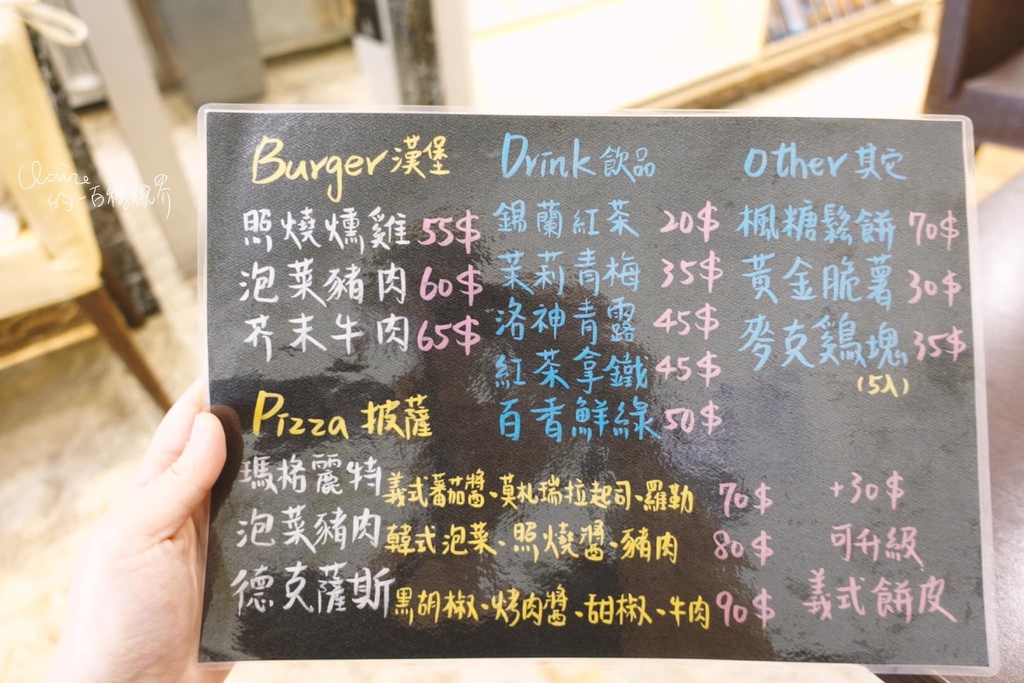 Claire
的一百種視界
Burger 漢堡
照燒燻雞 55$
泡菜豬肉 60$
芥末牛肉 65$
Drink 飲品
錫蘭紅茶 20$
茉莉青梅 35$
洛神青露 45$
紅茶拿鐵 45$
百香鮮綠 50$
Other 其它
楓糖鬆餅 70$
黃金脆薯 30$
麥克鷄塊 35$
(5入)
Pizza 披薩
瑪格麗特 義式蕃茄醬、莫札瑞拉起司、羅勒 70$
泡菜豬肉 韓式泡菜、照燒醬、豬肉 80$
德克薩斯 黑胡椒、烤肉醬、甜椒、牛肉 90$
+30$
可升級
義式餅皮